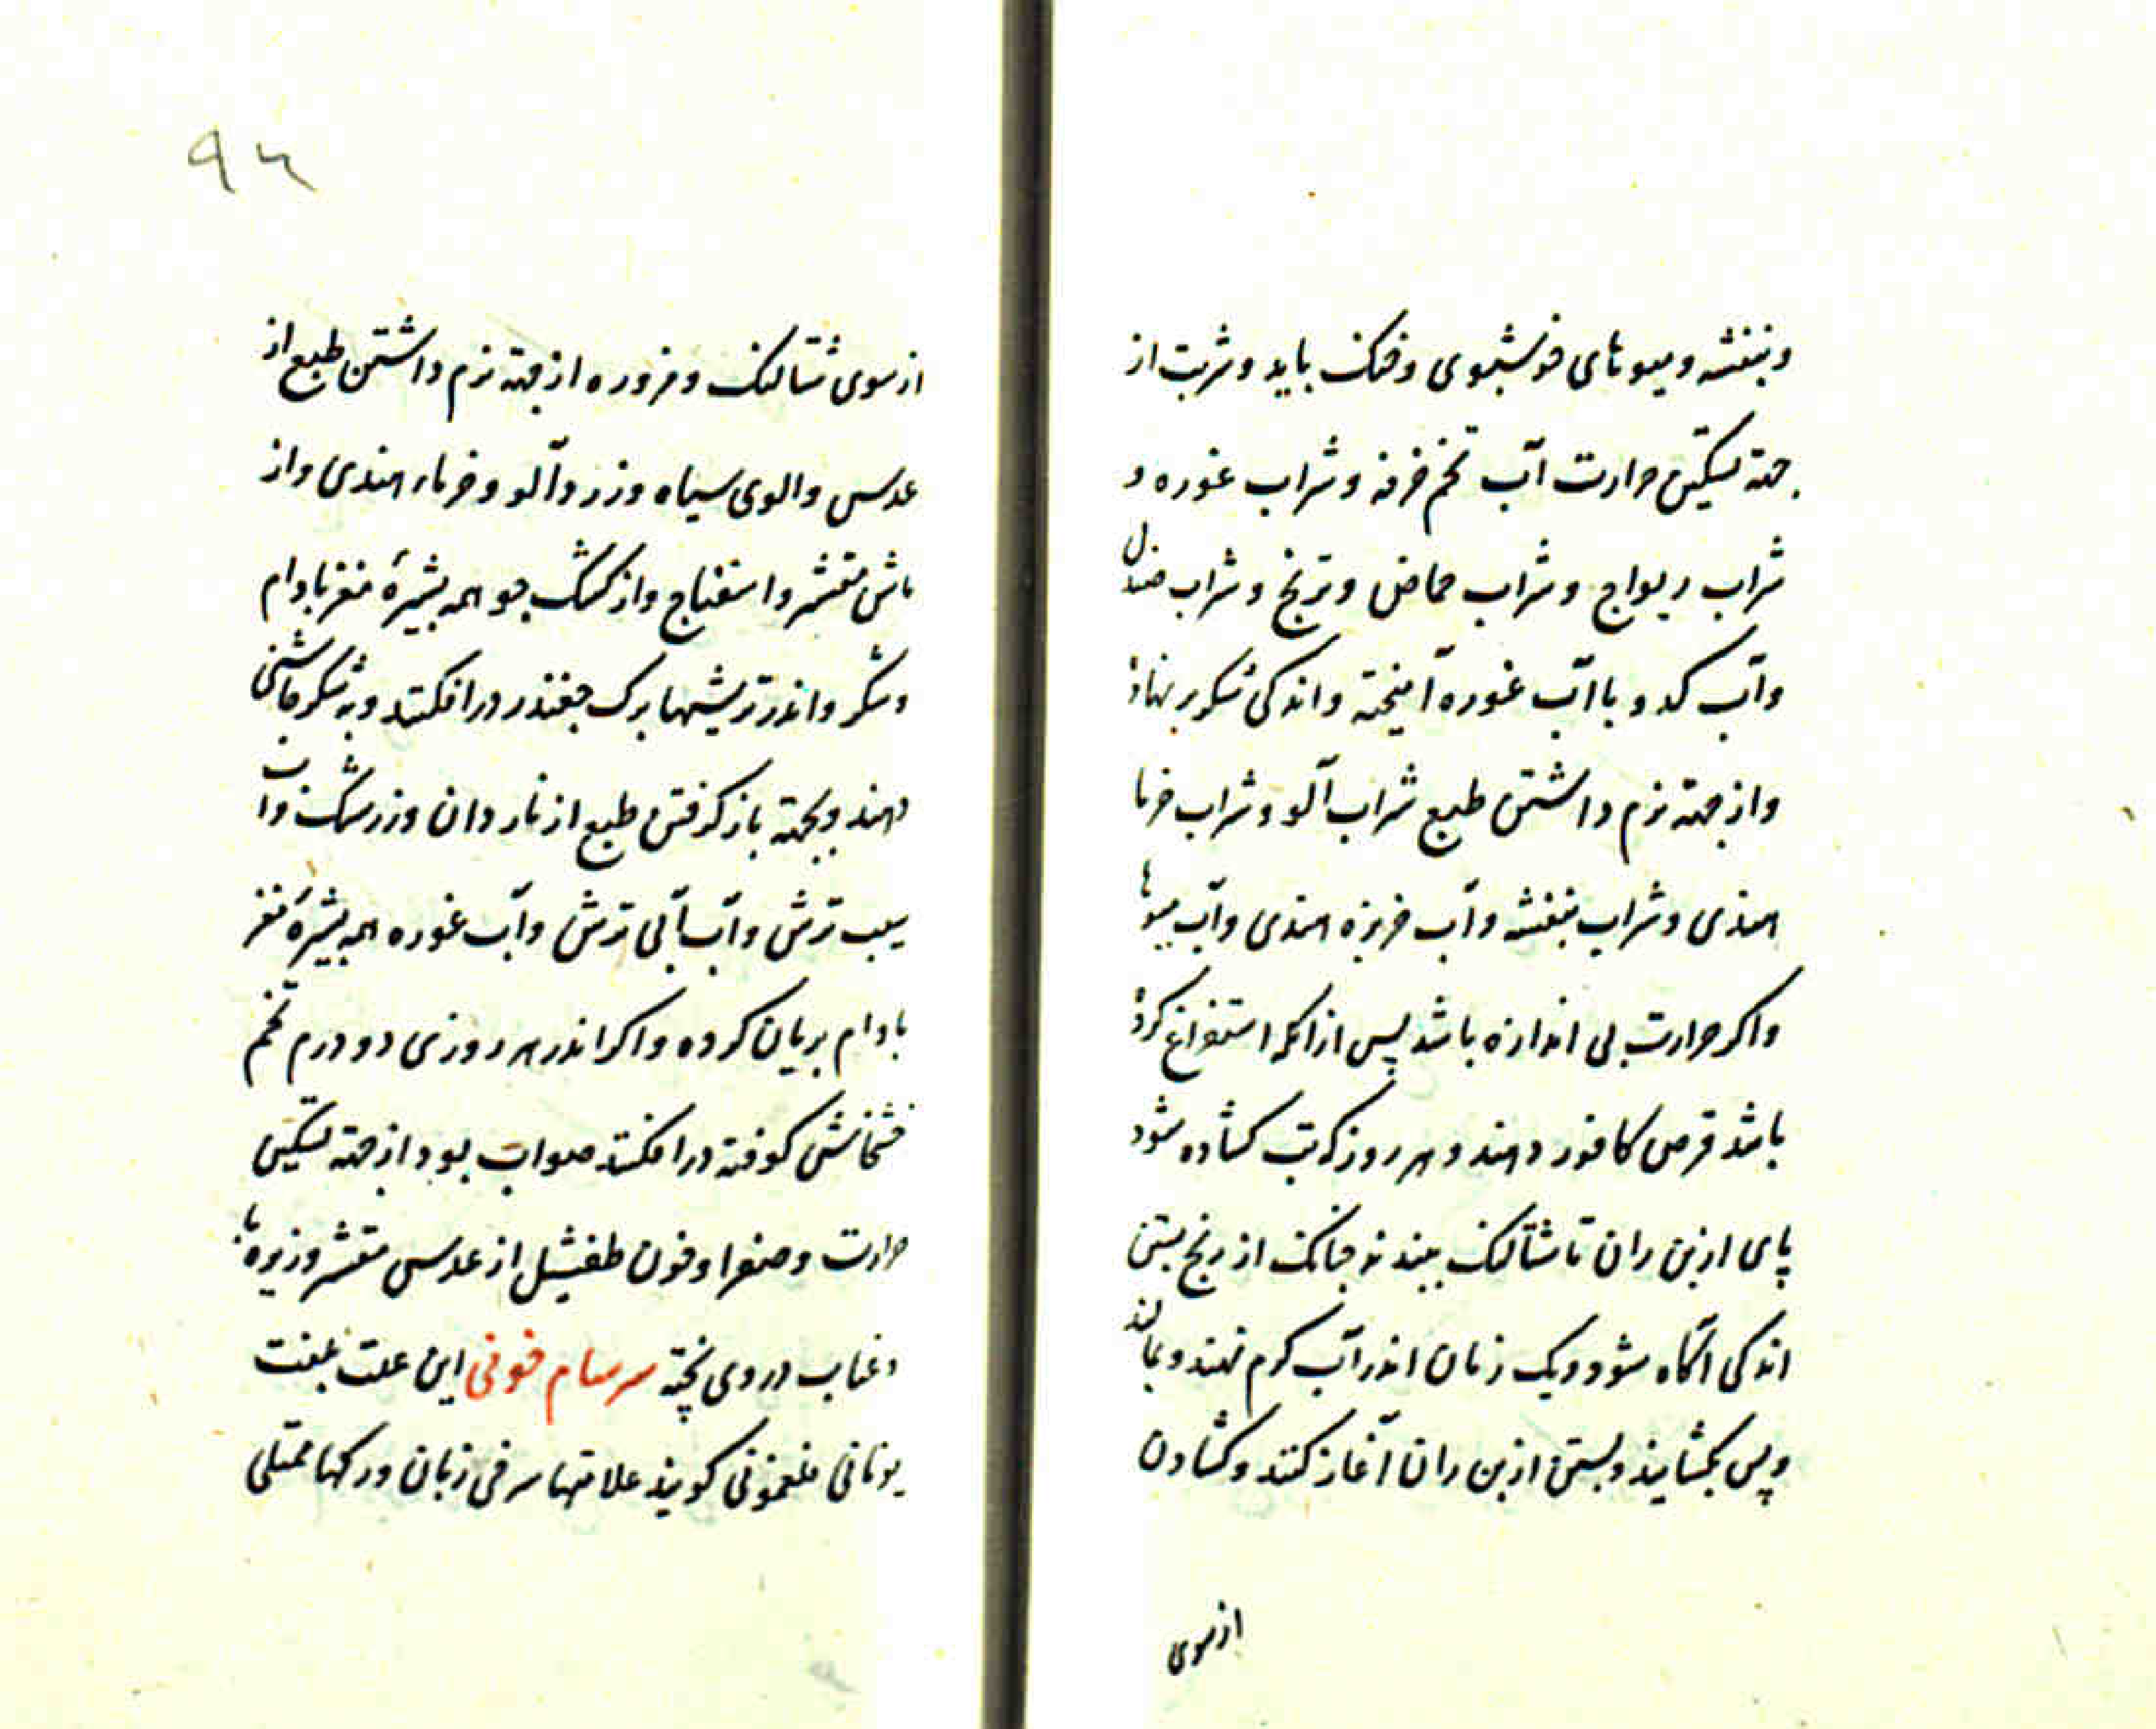 وبنفشه و میوهای خوشبوی و خنک باید و شربت از
جهة تسکین حرارت آب تخم خرفه و شراب غوره و
شراب ریواج و شراب حماض و ترنج و شراب صندل
وآب کدو با آب غوره آمیخته و اندکی شکر برنهاد
واز جهة نرم داشتن طبع شراب آلو و شراب خرما
هندی و شراب بنفشه و آب خربزه هندی و آب میوها
واکر حرارت بی اندازه باشد پس از انکه استفراغ کرد
باشد قرص کافور دهند و هر روز که تب کشاده شود
پای از بن ران تا شتالنک ببندند چنانک از رنج بستن
اندکی آکاه شود و یک زمان اندر آب کرم نهند و بمالند
وپس بکشایند و بستن از بن ران آغاز کنند و کشادن
از سوی
۹۴
از سوی شتالنک و مزوره از جهة نرم داشتن طبع از
عدس والوی سیاه و زردآلو و خرماء هندی و از
ماش مقشر و اسفناج و از کشک جو همه بشیرۀ مغز بادام
وشکر و اندر ترشیها برک چغندر درافکنند و به شکر چاشنی
دهند و بجهة بازکرفتن طبع از ناردان و زرشک و آب
سیب ترش و آب آبی ترش و آب غوره همه بشیرۀ مغز
بادام بریان کرده و اکر اندر هر روزی دو درم تخم
خشخاش کوفته درافکنند صواب بود از جهة تسکین
حرارت و صفرا و خون طفشیل از عدس مقشر و زیره با
وعناب در وی پخته سرسام خونی این علت بلغت
یونانی فلغمونی کویند علامتها سرخی زبان و رکها ممتلی